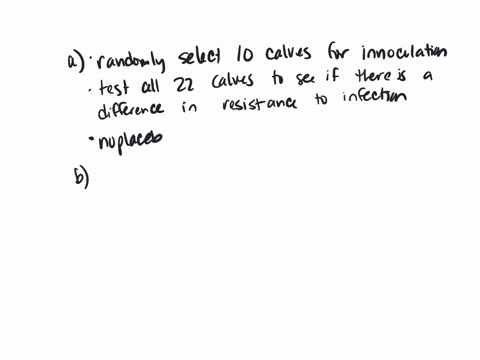 a) • randomly select 10 calves for innoculation
• test all 22 calves to see if there is a
difference in resistance to infection
• no placebo
b)